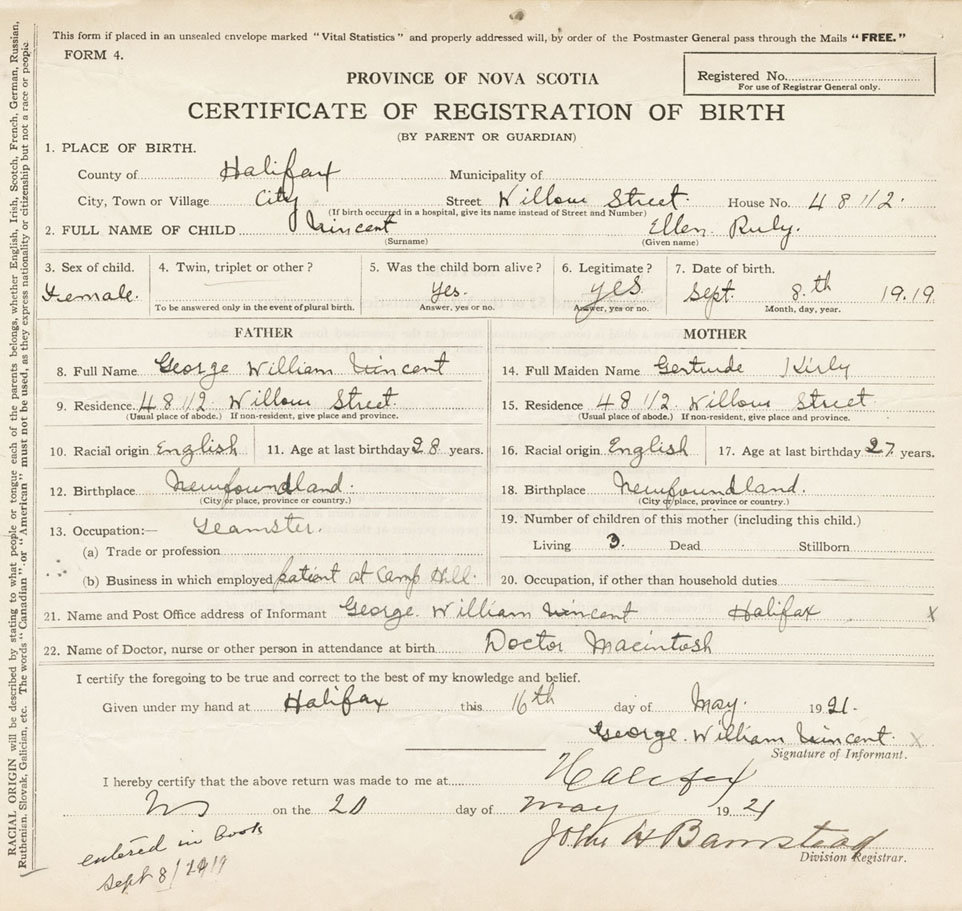 This form if placed in an unsealed envelope marked "Vital Statistics" and properly addressed will, by order of the Postmaster General pass through the Mails "FREE."
FORM 4.
PROVINCE OF NOVA SCOTIA
Registered No.
For use of Registrar General only.
CERTIFICATE OF REGISTRATION OF BIRTH
(BY PARENT OR GUARDIAN)
1. PLACE OF BIRTH.
County of Halifax Municipality of
City, Town or Village City Street Willow Street. House No. 48 1/2.
(If birth occurred in a hospital, give its name instead of Street and Number)
2. FULL NAME OF CHILD Vincent Ellen Ruby.
(Surname) (Given name)
3. Sex of child. 4. Twin, triplet or other? 5. Was the child born alive? 6. Legitimate? 7. Date of birth.
Female. yes. yes Sept. 8.th 1919.
To be answered only in the event of plural birth. Answer, yes or no. Answer, yes or no. Month, day, year.
FATHER MOTHER
8. Full Name George William Vincent 14. Full Maiden Name Gertrude
9. Residence 48 1/2 Willow Street. 15. Residence 48 1/2 Willow Street
(Usual place of abode.) If non-resident, give place and province. (Usual place of abode.) If non-resident, give place and province.
10. Racial origin English 11. Age at last birthday 28 years. 16. Racial origin English 17. Age at last birthday 27 years.
12. Birthplace Newfoundland. 18. Birthplace Newfoundland.
(City or place, province or country.) (City or place, province or country.)
13. Occupation:— Teamster. 19. Number of children of this mother (including this child.)
(a) Trade or profession Living 3. Dead Stillborn
(b) Business in which employed patient at Camp Hill. 20. Occupation, if other than household duties
21. Name and Post Office address of Informant George William Vincent Halifax x
22. Name of Doctor, nurse or other person in attendance at birth Doctor Macintosh
I certify the foregoing to be true and correct to the best of my knowledge and belief.
Given under my hand at Halifax this 16th day of May. 1921.
George William Vincent. x
Signature of Informant.
I hereby certify that the above return was made to me at Halifax
NS on the 20 day of May 1921
John H Barnstead
Division Registrar.
entered in book
Sept 8/1919
RACIAL ORIGIN will be described by stating to what people or tongue each of the parents belongs, whether English, Irish, Scotch, French, German, Russian,
Ruthenian, Slovak, Galician, etc. The words "Canadian" or "American" must not be used, as they express nationality or citizenship but not a race or people